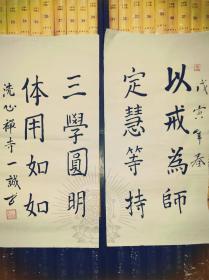 戊寅年春
以戒為師
定慧等持
三學圓明
体用如如
洗心禅寺一誠书